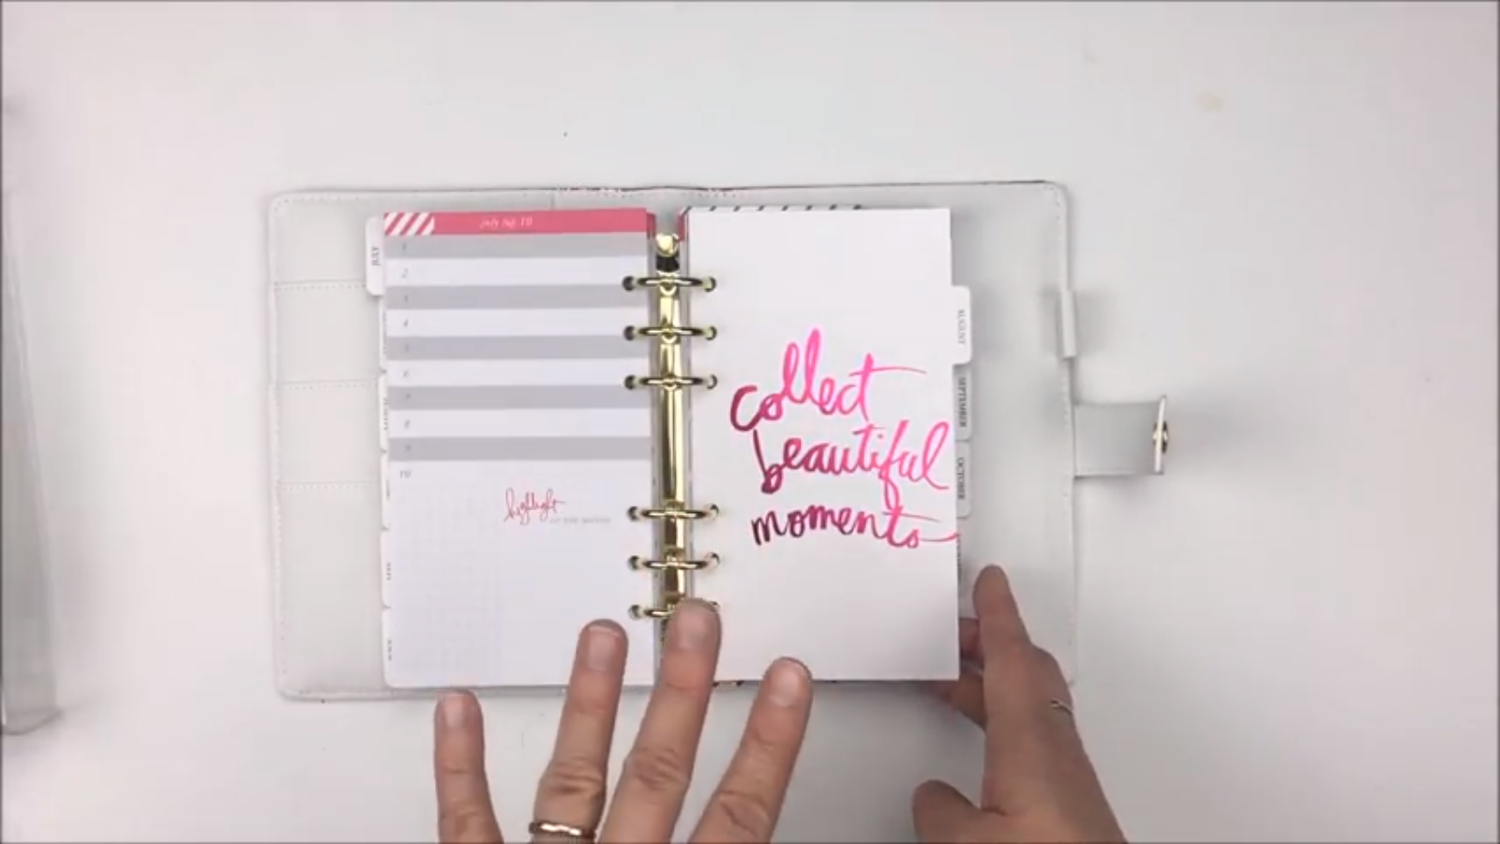 JULY
july top 10
1
2
3
4
5
6
7
8
9
10
highlight
OF THE MONTH
collect
beautiful
moments
AUGUST
SEPTEMBER
OCTOBER